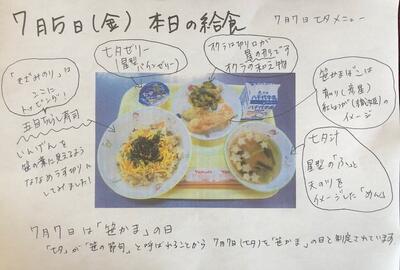 7月5日(金) 本日の給食
7月7日 七夕メニュー
七夕ゼリー
星型
パインゼリー
オクラは切り口が
星の形です
オクラの和え物
「きざみのり」は
ここに
トッピング!
五目ちらし寿司
いんげんを
笹の葉に見るよう
ななめうす切りに
してみました!
笹かまぼこは
青のり(彦星)
紅しょうが(織姫)の
イメージ
七夕汁
星型の「ふ」と
天の川を
イメージした「めん」
7月7日は「笹かま」の日
「七夕」が「笹の節句」と呼ばれることから 7月7日(七夕)を"笹かま"の日と制定されています